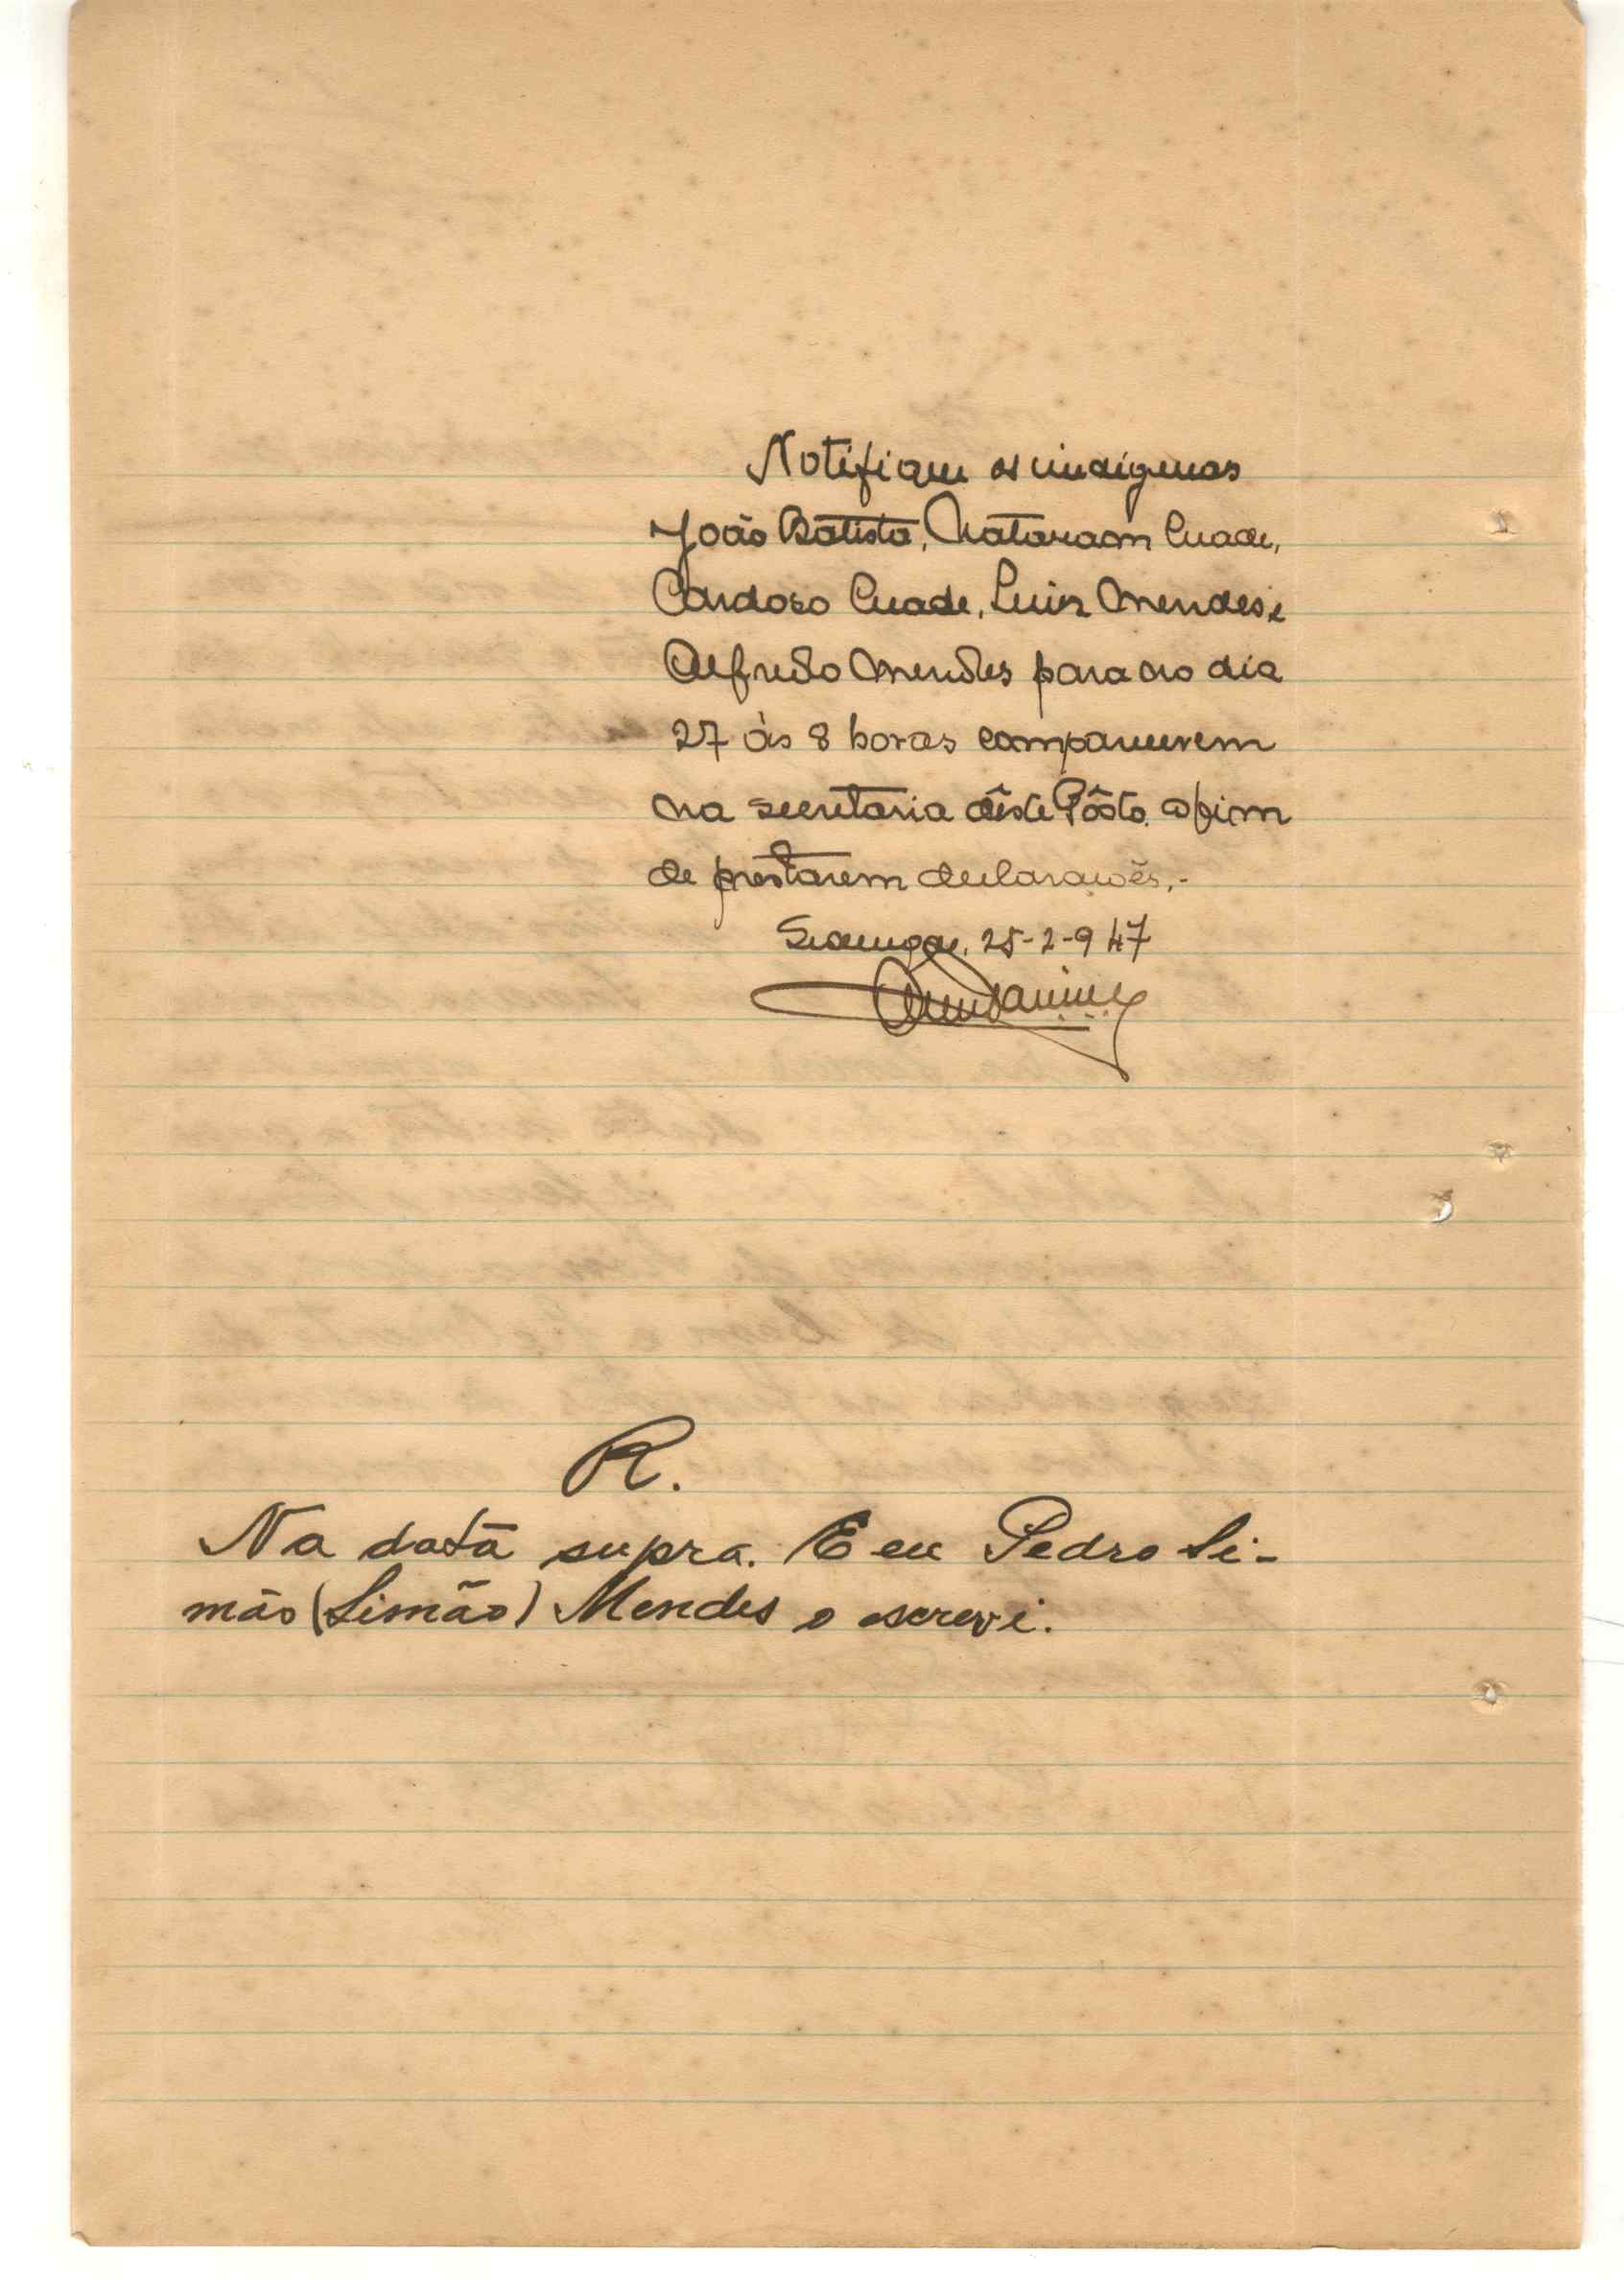 Notifique os indígenas
João Batista, Natanaom Cuade,
Cardoso Cuade, Luiz Mendes e
Alfredo Mendes para no dia
27 às 8 horas comparecerem
na secretaria dêste Pôsto afim
de prestarem declarações.-
25-2-947
R.
Na data supra. E eu Pedro Si-
mão (Simão) Mendes o escrevi.